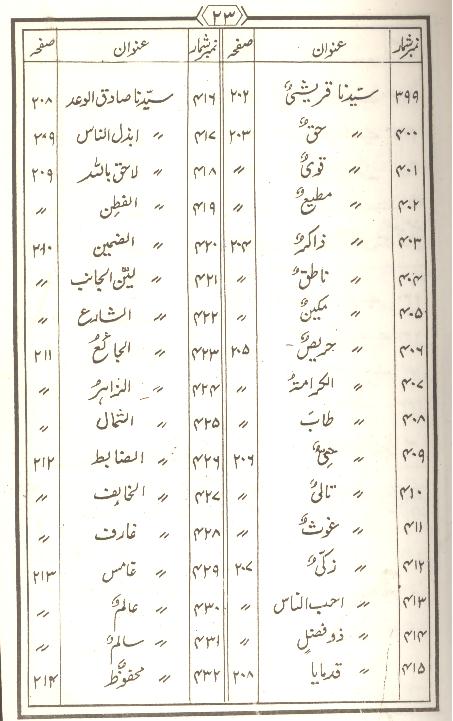 ۲۳
نمبر شمار عنوان صفحہ نمبر شمار عنوان صفحہ
۳۹۹ سیّدنا قریشیٌ ۲۰۲ ۴۱۶ سیّدنا صادق الوعد ۲۰۸
۴۰۰ " حقٌ ۲۰۳ ۴۱۷ " ابذل الناس ۲۰۹
۴۰۱ " قویٌ " ۴۱۸ " لاحق باللہ ۲۰۹
۴۰۲ " مطیعٌ " ۴۱۹ " الفطِن "
۴۰۳ " ذاکرٌ ۲۰۴ ۴۲۰ " الضمین ۲۱۰
۴۰۴ " ناطقٌ " ۴۲۱ " لیّن الجانب "
۴۰۵ " مکینٌ " ۴۲۲ " الشارع "
۴۰۶ " حریصٌ ۲۰۵ ۴۲۳ " الجامعُ ۲۱۱
۴۰۷ " الکرامۃُ " ۴۲۴ " الزاہرُ "
۴۰۸ " طابَ " ۴۲۵ " الثمال "
۴۰۹ " ۲۰۶ ۴۲۶ " الضابط ۲۱۲
۴۱۰ " تالیٌ " ۴۲۷ " الخایف "
۴۱۱ " غوثٌ " ۴۲۸ " عارف "
۴۱۲ " زکیٌّ ۲۰۷ ۴۲۹ " ۲۱۳
۴۱۳ " احب الناس " ۴۳۰ " عالمٌ "
۴۱۴ " ذو فضلٍ " ۴۳۱ " سالمٌ "
۴۱۵ " قدمایا ۲۰۸ ۴۳۲ " محفوظٌ ۲۱۴